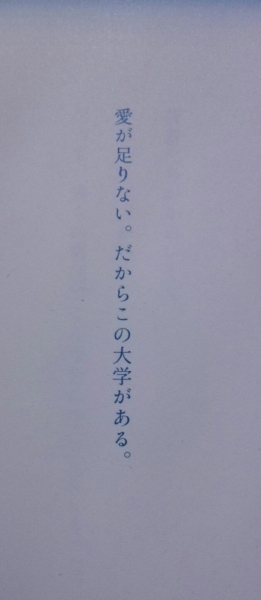 愛が足りない。だからこの大学がある。